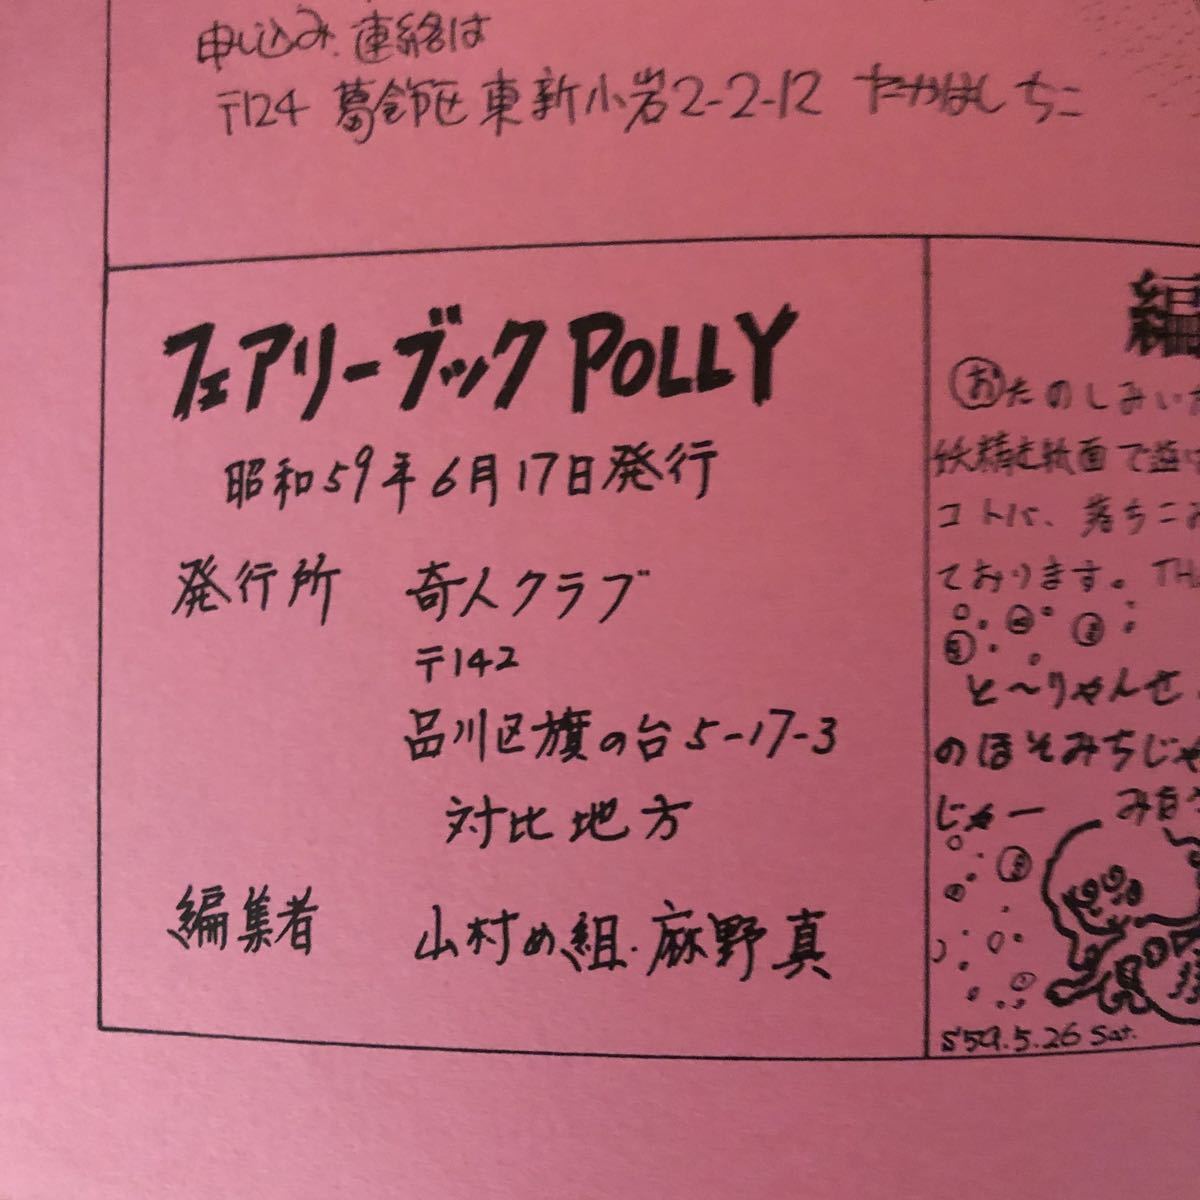 申し込み.連絡は
〒124 葛飾区東新小岩2-2-12 たかはしちこ
フェアリーブック POLLY
昭和59年6月17日発行
発行所 奇人クラブ
〒142
品川区旗の台5-17-3
対比地方
編集者 山村め組.麻野真
編
おたのしみい
妖精を絵画で遊
コトバ、落ちこ
ております。TH
と〜りゃんせ
のほそみちじゃ
じゃー
S'59.5.26 Sat.